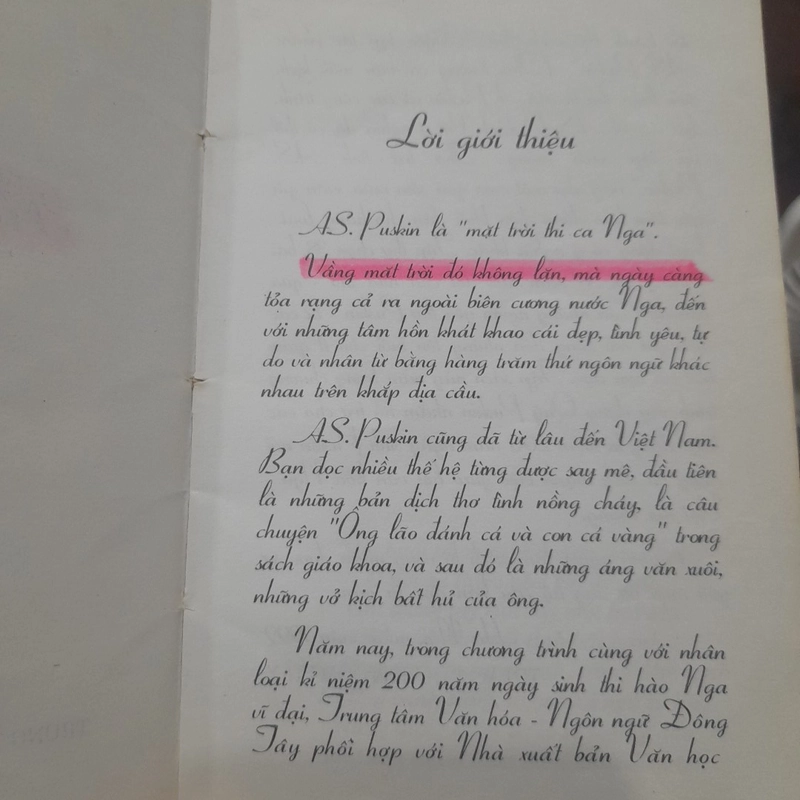 Lời giới thiệu
A.S. Puskin là "mặt trời thi ca Nga".
Vầng mặt trời đó không lặn, mà ngày càng
tỏa rạng cả ra ngoài biên cương nước Nga, đến
với những tâm hồn khát khao cái đẹp, tình yêu, tự
do và nhân từ bằng hàng trăm thứ ngôn ngữ khác
nhau trên khắp địa cầu.
A.S. Puskin cũng đã từ lâu đến Việt Nam.
Bạn đọc nhiều thế hệ từng được say mê, đầu tiên
là những bản dịch thơ tình nồng cháy, là câu
chuyện "Ông lão đánh cá và con cá vàng" trong
sách giáo khoa, và sau đó là những áng văn xuôi,
những vở kịch bất hủ của ông.
Năm nay, trong chương trình cùng với nhân
loại kỉ niệm 200 năm ngày sinh thi hào Nga
vĩ đại, Trung tâm Văn hóa - Ngôn ngữ Đông
Tây phối hợp với Nhà xuất bản Văn học